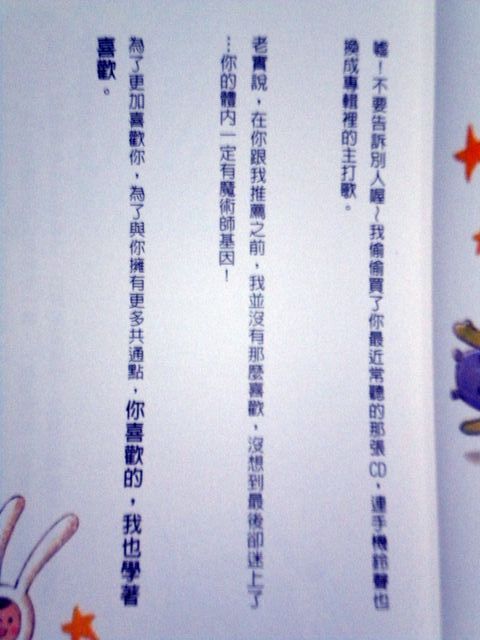 噓！不要告訴別人喔～我偷偷買了你最近常聽的那張CD，連手機鈴聲也
換成專輯裡的主打歌。
老實說，在你跟我推薦之前，我並沒有那麼喜歡，沒想到最後卻迷上了
…你的體內一定有魔術師基因！
為了更加喜歡你，為了與你擁有更多共通點，你喜歡的，我也學著
喜歡。